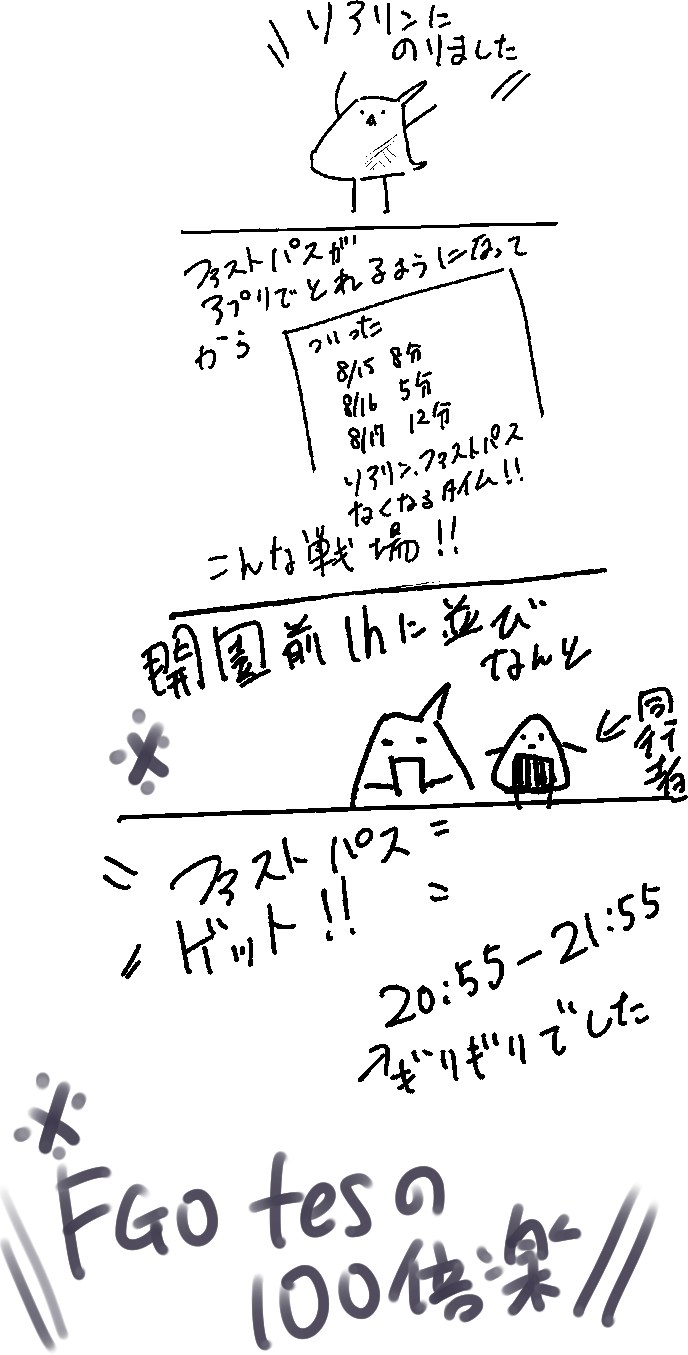 ソアリンに
のりました
ファストパスが
アプリでとれるようになって
から
ついった
8/15 8分
8/16 5分
8/17 12分
ソアリン、ファストパス
なくなるタイム!!
こんな戦場!!
開園前1hに並び
なんと
※
同行者
ファストパス
ゲット!!
20:55-21:55
↗ぎりぎりでした
※
FGO fesの
100倍楽